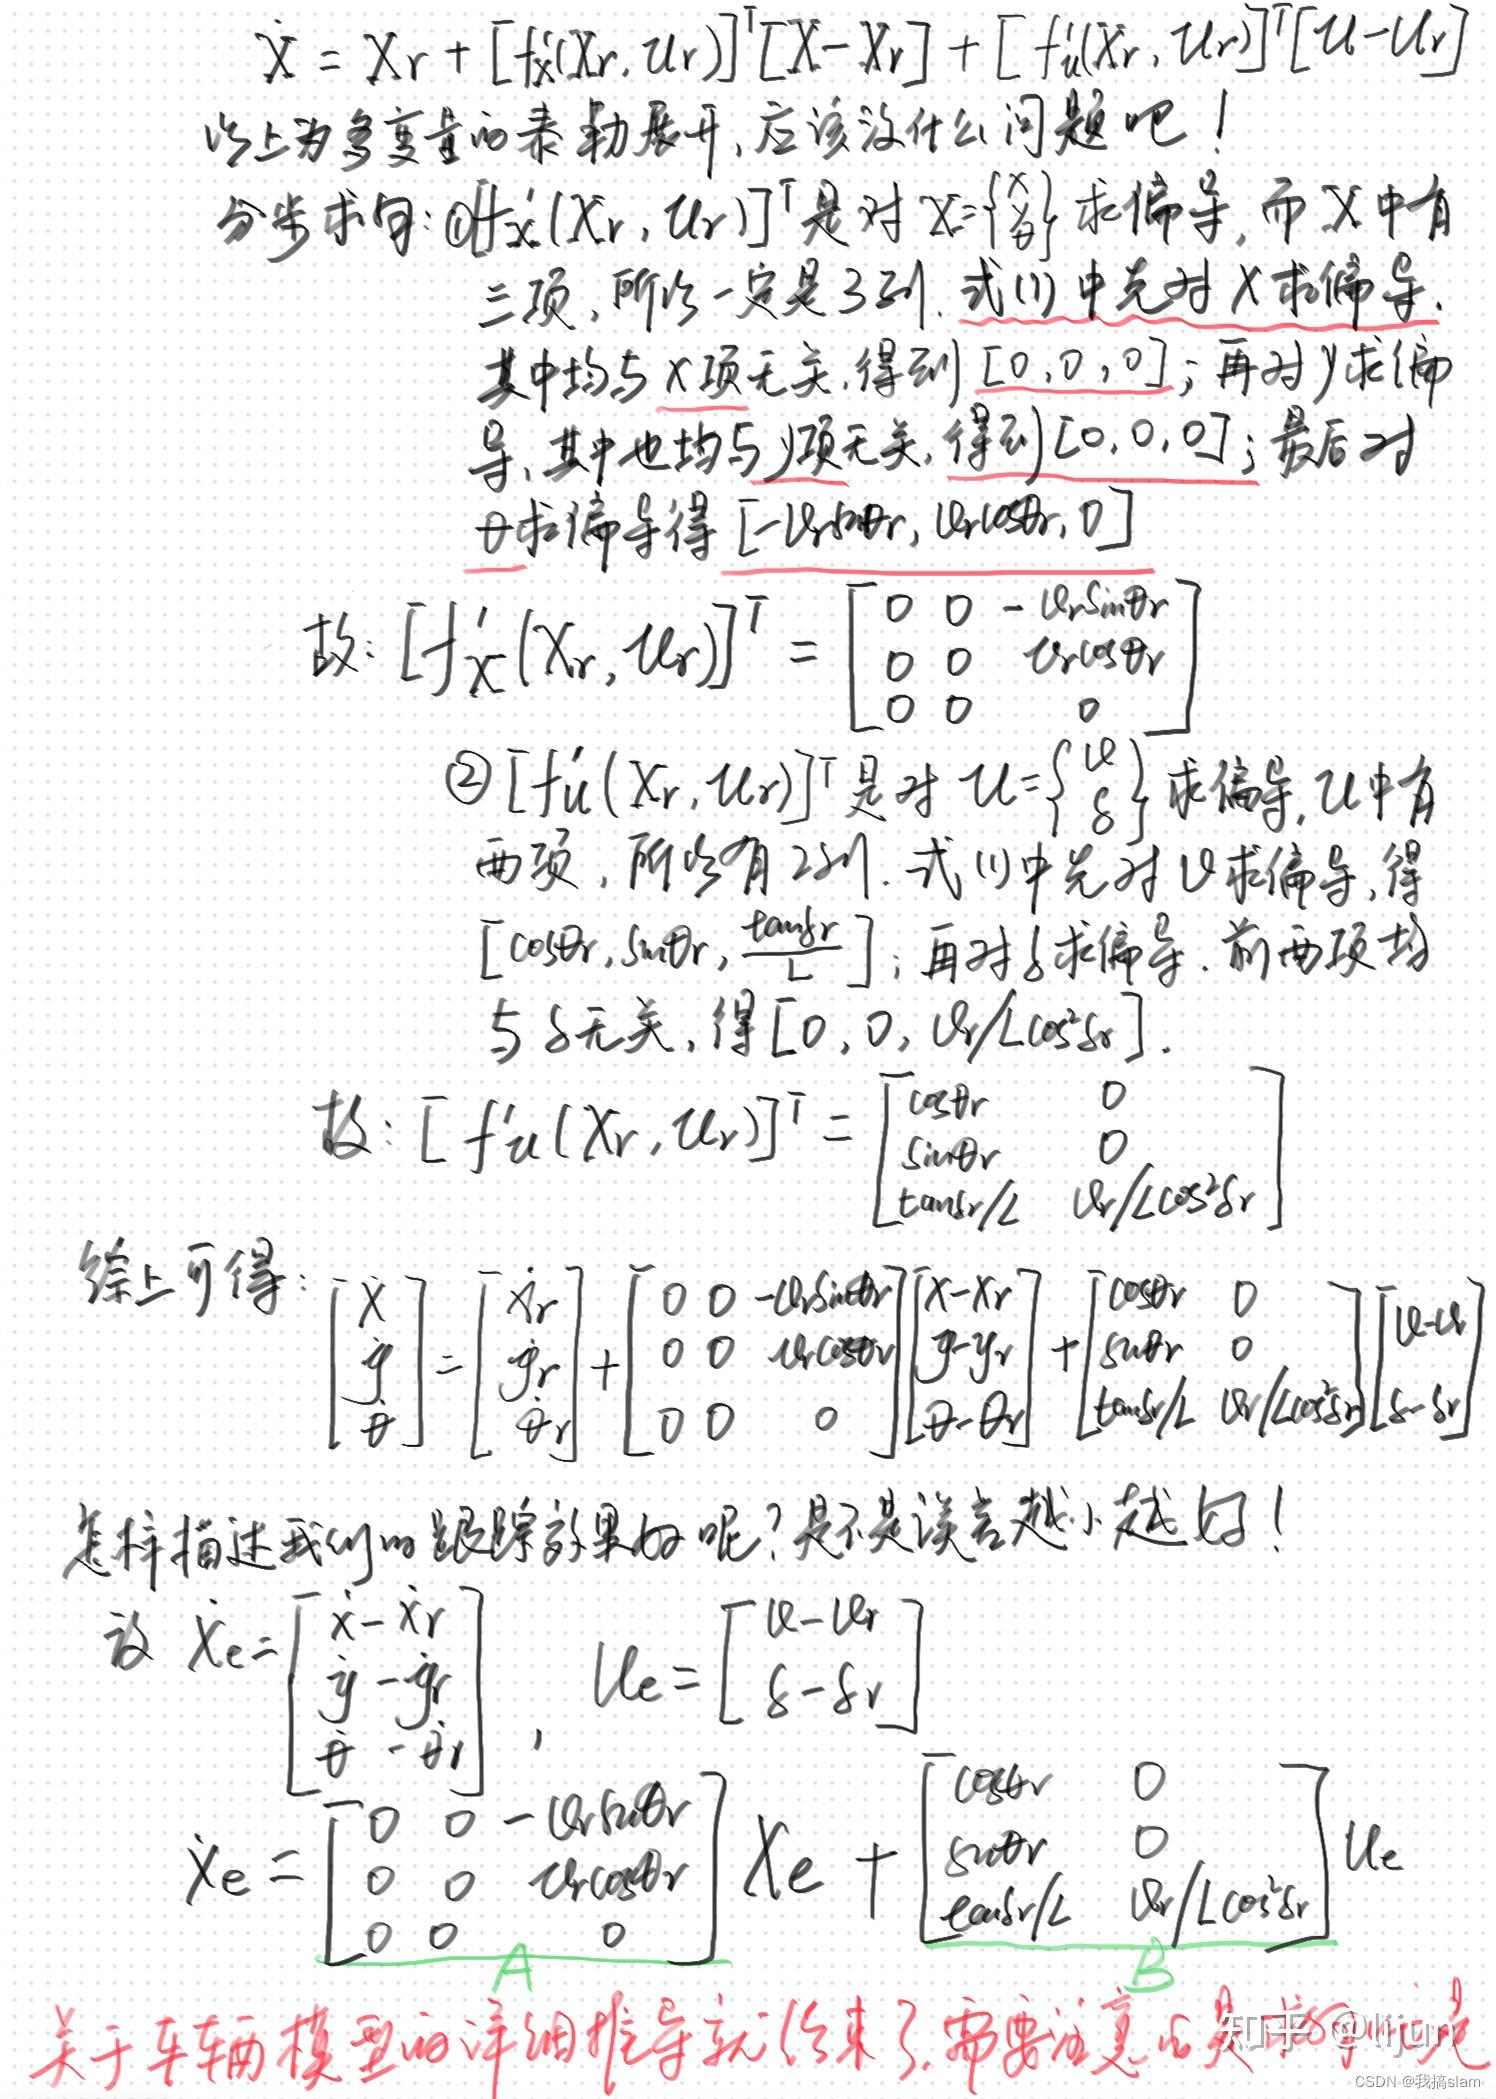 Ẋ = Ẋr + [f'x(Xr, Ur)]ᵀ[X − Xr] + [f'u(Xr, Ur)]ᵀ[U − Ur]
以上为多变量的泰勒展开, 应该没什么问题吧!
分步求导: ①[f'x(Xr, Ur)]ᵀ是对 X={x y θ} 求偏导, 而 X 中有
三项, 所以一定是3列. 式(1)中先对 X 求偏导.
其中均与 X 项无关, 得到 [0, 0, 0]; 再对 y 求偏
导, 其中也均与 y 项无关, 得到 [0, 0, 0]; 最后对
θ求偏导得 [−vrsinθr, vrcosθr, 0]
故: [f'X(Xr, Ur)]ᵀ = [0 0 −vrsinθr
0 0 vrcosθr
0 0 0]
② [f'u(Xr, Ur)]ᵀ是对 U={v δ} 求偏导, U 中有
两项, 所以有2列. 式(1)中先对 v 求偏导, 得
[cosθr, sinθr, tanδr/L]; 再对δ求偏导. 前两项均
与 δ 无关, 得 [0, 0, vr/Lcos²δr].
故: [f'u(Xr, Ur)]ᵀ = [cosθr 0
sinθr 0
tanδr/L vr/Lcos²δr]
综上可得:
[ẋ ẏ θ̇] = [ẋr ẏr θ̇r] + [0 0 −vrsinθr 0 0 vrcosθr 0 0 0][x−xr y−yr θ−θr] + [cosθr 0 sinθr 0 tanδr/L vr/Lcos²δr][v−vr δ−δr]
怎样描述我们的跟踪效果好呢? 是不是误差越小越好!
设 Ẋe = [ẋ − ẋr ẏ − ẏr θ̇ − θ̇r], Ue = [v − vr δ − δr]
Ẋe = [0 0 −vrsinθr 0 0 vrcosθr 0 0 0] Xe + [cosθr 0 sinθr 0 tanδr/L vr/Lcos²δr] Ue
A B
关于车辆模型的详细推导就结束了, 需要注意的是
知乎 @lijun
CSDN @我搞slam